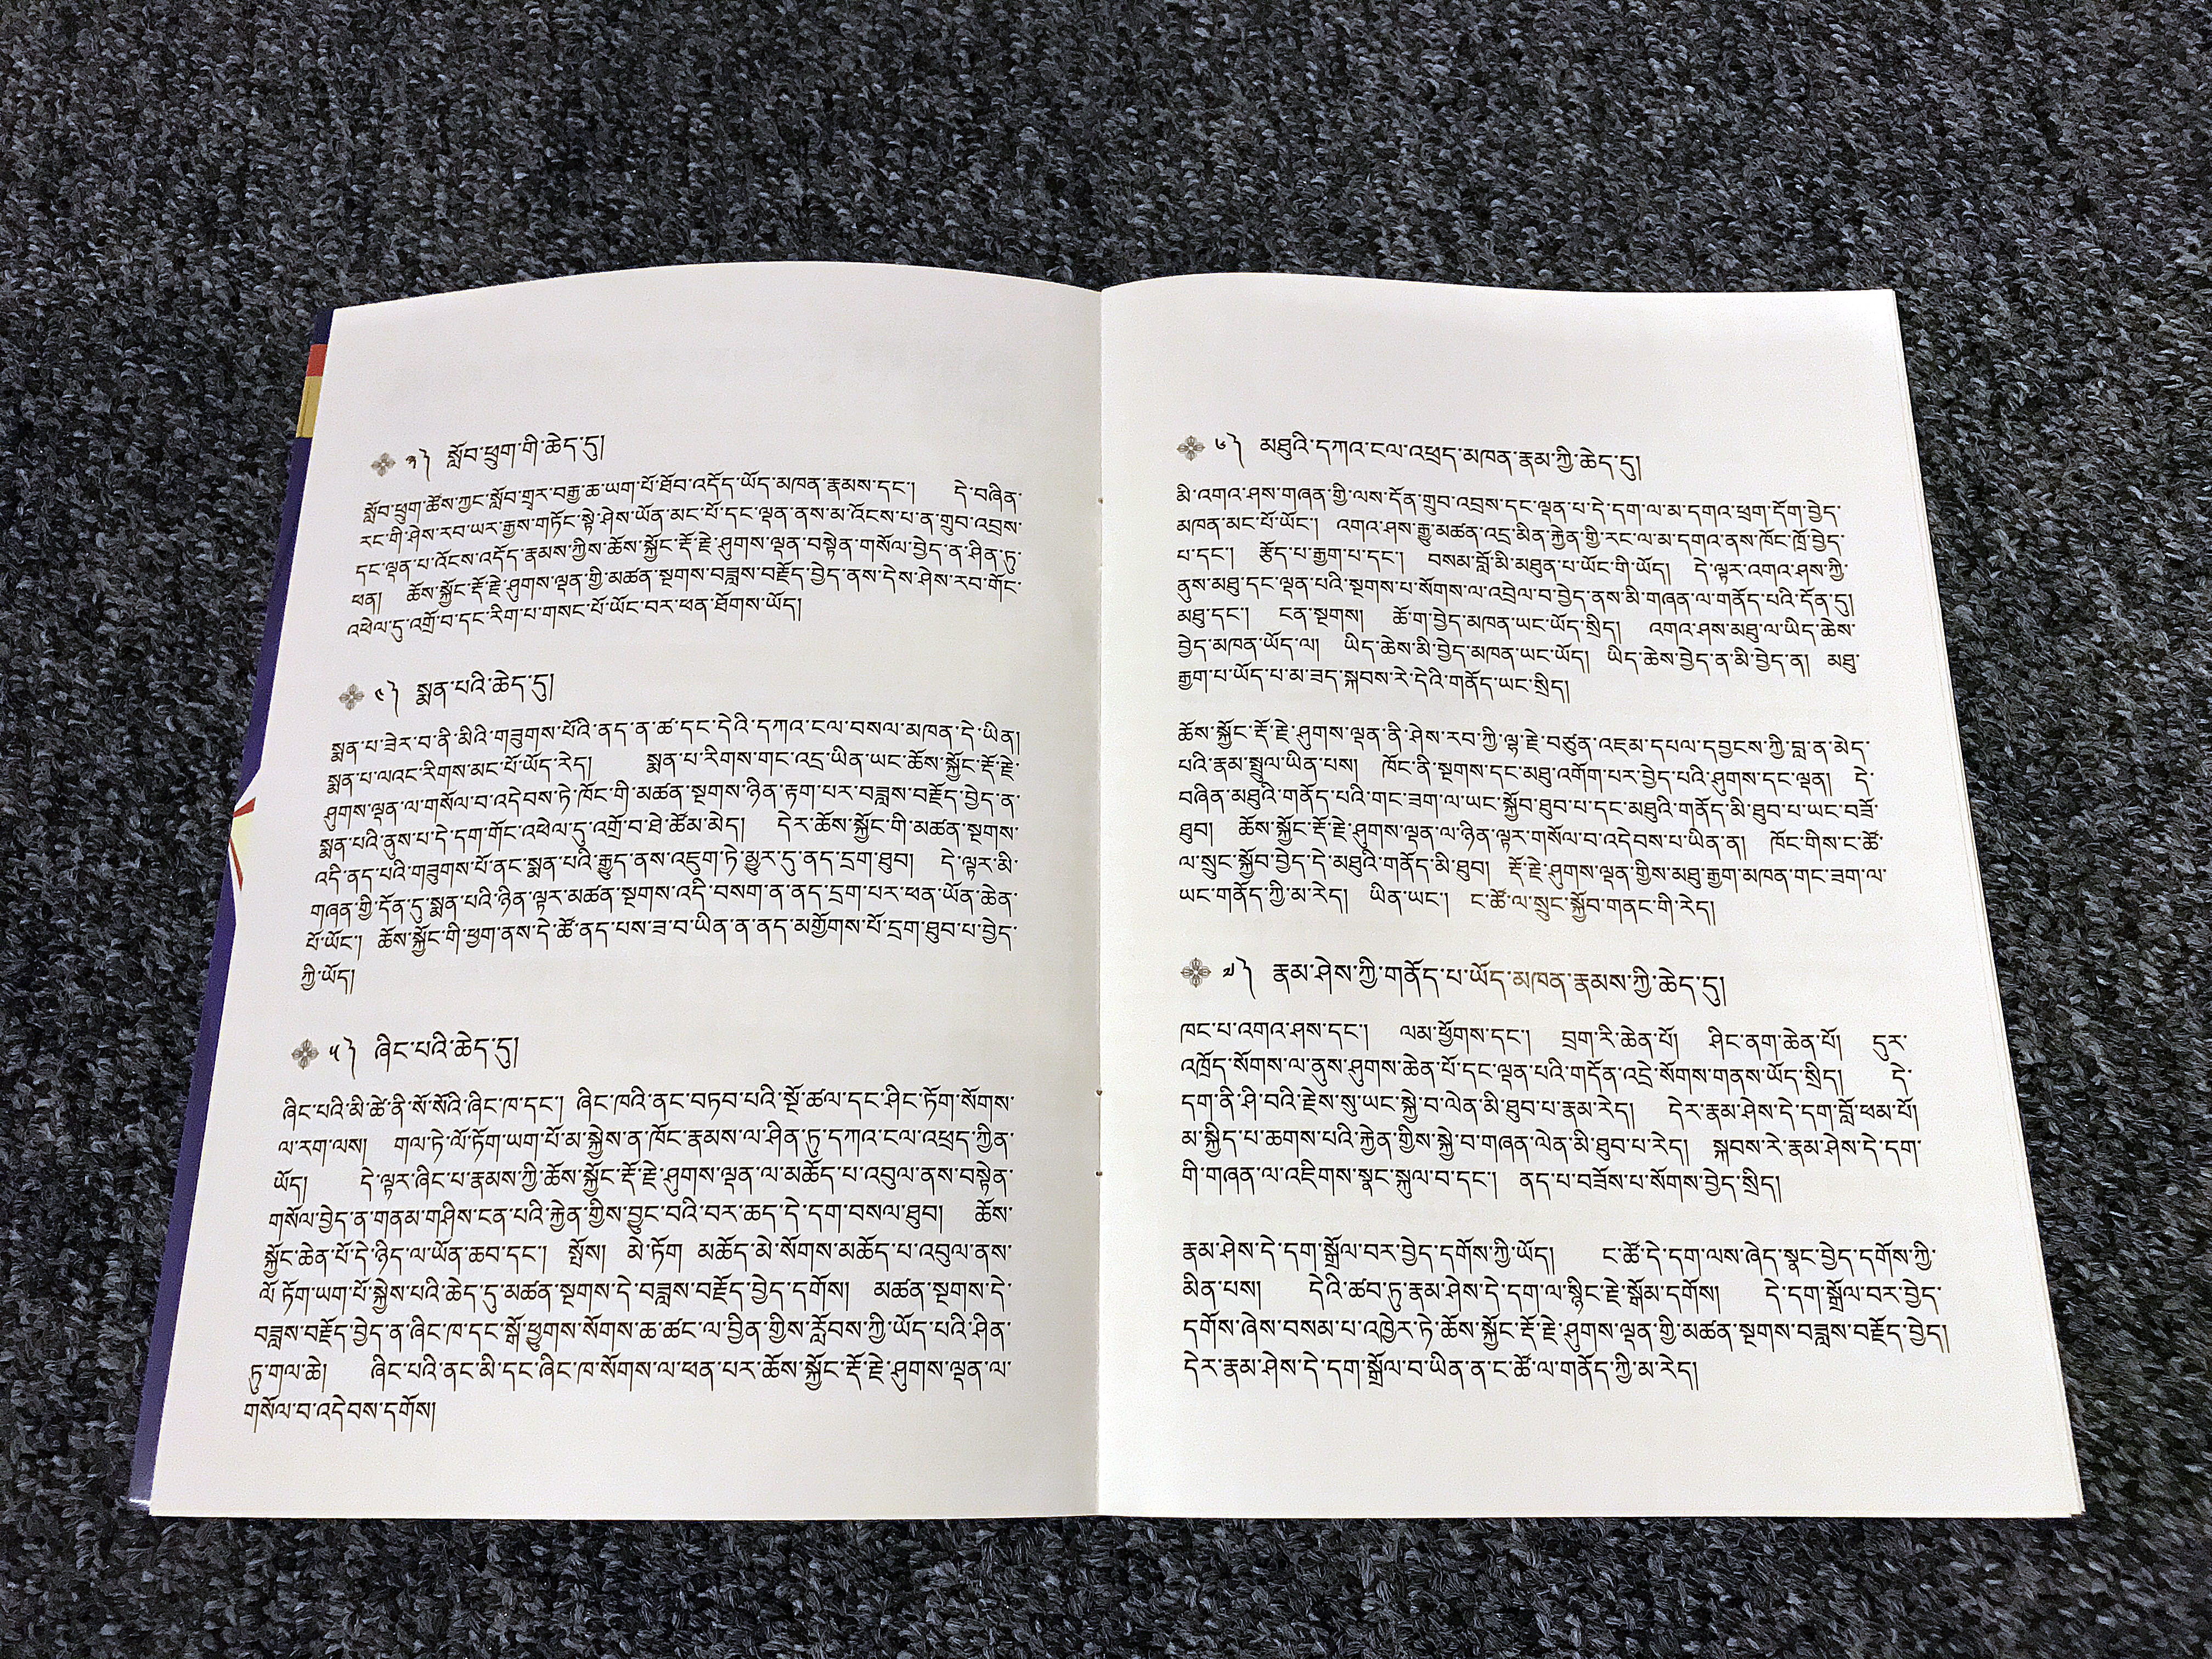 ༣༽ སློབ་ཕྲུག་གི་ཆེད་དུ།
སློབ་ཕྲུག་ཚོས་ཀྱང་སློབ་གྲྭར་བརྒྱ་ཆ་ཡག་པོ་ཐོབ་འདོད་ཡོད་མཁན་རྣམས་དང་། དེ་བཞིན་
རང་གི་ཤེས་རབ་ཡར་རྒྱས་གཏོང་སྟེ་ཤེས་ཡོན་མང་པོ་དང་ལྡན་ནས་མ་འོངས་པ་ན་གྲུབ་འབྲས་
དང་ལྡན་པ་འོངས་འདོད་རྣམས་ཀྱིས་ཆོས་སྐྱོང་རྡོ་རྗེ་ཤུགས་ལྡན་བསྟེན་གསོལ་བྱེད་ན་ཤིན་ཏུ་
ཕན། ཆོས་སྐྱོང་རྡོ་རྗེ་ཤུགས་ལྡན་གྱི་མཚན་སྔགས་བཟླས་བརྗོད་བྱེད་ནས་དེས་ཤེས་རབ་གོང་
འཕེལ་དུ་འགྲོ་བ་དང་རིག་པ་གསང་པོ་ཡོང་བར་ཕན་ཐོགས་ཡོད།
༤༽ སྨན་པའི་ཆེད་དུ།
སྨན་པ་ཟེར་བ་ནི་མིའི་གཟུགས་པོའི་ནད་ན་ཚ་དང་དེའི་དཀའ་ངལ་བསལ་མཁན་དེ་ཡིན།
སྨན་པ་ལའང་རིགས་མང་པོ་ཡོད་རེད། སྨན་པ་རིགས་གང་འདྲ་ཡིན་ཡང་ཆོས་སྐྱོང་རྡོ་རྗེ་
ཤུགས་ལྡན་ལ་གསོལ་བ་འདེབས་ཏེ་ཁོང་གི་མཚན་སྔགས་ཉིན་རྟག་པར་བཟླས་བརྗོད་བྱེད་ན་
སྨན་པའི་ནུས་པ་དེ་དག་གོང་འཕེལ་དུ་འགྲོ་བ་ཐེ་ཚོམ་མེད། དེར་ཆོས་སྐྱོང་གི་མཚན་སྔགས་
འདི་ནད་པའི་གཟུགས་པོ་ནང་སྨན་པའི་རྒྱུད་ནས་འཇུག་ཏེ་མྱུར་དུ་ནད་དྲག་ཐུབ། དེ་ལྟར་མི་
གཞན་གྱི་དོན་དུ་སྨན་པའི་ཉིན་ལྟར་མཚན་སྔགས་འདི་བསག་ན་ནད་དྲག་པར་ཕན་ཡོན་ཆེན་
པོ་ཡོང་། ཆོས་སྐྱོང་གི་ཕྱག་ནས་དེ་ཚོ་ནད་པས་ཟ་བ་ཡིན་ན་ནད་མགྱོགས་པོ་དྲག་ཐུབ་པ་བྱེད་
ཀྱི་ཡོད།
༥༽ ཞིང་པའི་ཆེད་དུ།
ཞིང་པའི་མི་ཚེ་ནི་སོ་སོའི་ཞིང་ཁ་དང་། ཞིང་ཁའི་ནང་བཏབ་པའི་སྔོ་ཚལ་དང་ཤིང་ཏོག་སོགས་
ལ་རག་ལས། གལ་ཏེ་ལོ་ཏོག་ཡག་པོ་མ་སྐྱེས་ན་ཁོང་རྣམས་ལ་ཤིན་ཏུ་དཀའ་ངལ་འཕྲད་ཀྱིན་
ཡོད། དེ་ལྟར་ཞིང་པ་རྣམས་ཀྱི་ཆོས་སྐྱོང་རྡོ་རྗེ་ཤུགས་ལྡན་ལ་མཆོད་པ་འབུལ་ནས་བསྟེན་
གསོལ་བྱེད་ན་གནམ་གཤིས་ངན་པའི་རྐྱེན་གྱིས་བྱུང་བའི་བར་ཆད་དེ་དག་བསལ་ཐུབ། ཆོས་
སྐྱོང་ཆེན་པོ་དེ་ཉིད་ལ་ཡོན་ཆབ་དང་། སྤོས། མེ་ཏོག མཆོད་མེ་སོགས་མཆོད་པ་འབུལ་ནས་
ལོ་ཏོག་ཡག་པོ་སྐྱེས་པའི་ཆེད་དུ་མཚན་སྔགས་དེ་བཟླས་བརྗོད་བྱེད་དགོས། མཚན་སྔགས་དེ་
བཟླས་བརྗོད་བྱེད་ན་ཞིང་ཁ་དང་སྒོ་ཕྱུགས་སོགས་ཆ་ཚང་ལ་བྱིན་གྱིས་རློབས་ཀྱི་ཡོད་པའི་ཤིན་
ཏུ་གལ་ཆེ། ཞིང་པའི་ནང་མི་དང་ཞིང་ཁ་སོགས་ལ་ཕན་པར་ཆོས་སྐྱོང་རྡོ་རྗེ་ཤུགས་ལྡན་ལ་
གསོལ་བ་འདེབས་དགོས།
༦༽ མཐུའི་དཀའ་ངལ་འཕྲད་མཁན་རྣམ་ཀྱི་ཆེད་དུ།
མི་འགའ་ཤས་གཞན་གྱི་ལས་དོན་གྲུབ་འབྲས་དང་ལྡན་པ་དེ་དག་ལ་མ་དགའ་ཕྲག་དོག་བྱེད་
མཁན་མང་པོ་ཡོང་། འགའ་ཤས་རྒྱུ་མཚན་འདྲ་མིན་རྐྱེན་གྱི་རང་ལ་མ་དགའ་ནས་ཁོང་ཁྲོ་བྱེད་
པ་དང་། རྩོད་པ་རྒྱག་པ་དང་། བསམ་བློ་མི་མཐུན་པ་ཡོང་གི་ཡོད། དེ་ལྟར་འགའ་ཤས་ཀྱི་
ནུས་མཐུ་དང་ལྡན་པའི་སྔགས་པ་སོགས་ལ་འབྲེལ་བ་བྱེད་ནས་མི་གཞན་ལ་གནོད་པའི་དོན་དུ།
མཐུ་དང་། ངན་སྔགས། ཆོ་ག་བྱེད་མཁན་ཡང་ཡོད་སྲིད། འགའ་ཤས་མཐུ་ལ་ཡིད་ཆེས་
བྱེད་མཁན་ཡོད་ལ། ཡིད་ཆེས་མི་བྱེད་མཁན་ཡང་ཡོད། ཡིད་ཆེས་བྱེད་ན་མི་བྱེད་ན། མཐུ་
རྒྱག་པ་ཡོད་པ་མ་ཟད་སྐབས་རེ་དེའི་གནོད་ཡང་སྲིད།
ཆོས་སྐྱོང་རྡོ་རྗེ་ཤུགས་ལྡན་ནི་ཤེས་རབ་ཀྱི་ལྷ་རྗེ་བཙུན་འཇམ་དཔལ་དབྱངས་ཀྱི་བླ་ན་མེད་
པའི་རྣམ་སྤྲུལ་ཡིན་པས། ཁོང་ནི་སྔགས་དང་མཐུ་འགོག་པར་བྱེད་པའི་ཤུགས་དང་ལྡན། དེ་
བཞིན་མཐུའི་གནོད་པའི་གང་ཟག་ལ་ཡང་སྐྱོབ་ཐུབ་པ་དང་མཐུའི་གནོད་མི་ཐུབ་པ་ཡང་བཟོ་
ཐུབ། ཆོས་སྐྱོང་རྡོ་རྗེ་ཤུགས་ལྡན་ལ་ཉིན་ལྟར་གསོལ་བ་འདེབས་པ་ཡིན་ན། ཁོང་གིས་ང་ཚོ་
ལ་སྲུང་སྐྱོབ་བྱེད་དེ་མཐུའི་གནོད་མི་ཐུབ། རྡོ་རྗེ་ཤུགས་ལྡན་གྱིས་མཐུ་རྒྱག་མཁན་གང་ཟག་ལ་
ཡང་གནོད་ཀྱི་མ་རེད། ཡིན་ཡང་། ང་ཚོ་ལ་སྲུང་སྐྱོབ་གནང་གི་རེད།
༧༽ རྣམ་ཤེས་ཀྱི་གནོད་པ་ཡོད་མཁན་རྣམས་ཀྱི་ཆེད་དུ།
ཁང་པ་འགའ་ཤས་དང་། ལམ་ཕྱོགས་དང་། བྲག་རི་ཆེན་པོ། ཤིང་ནག་ཆེན་པོ། དུར་
འཁྲོད་སོགས་ལ་ནུས་ཤུགས་ཆེན་པོ་དང་ལྡན་པའི་གདོན་འདྲེ་སོགས་གནས་ཡོད་སྲིད། དེ་
དག་ནི་ཤི་བའི་རྗེས་སུ་ཡང་སྐྱེ་བ་ལེན་མི་ཐུབ་པ་རྣམ་རེད། དེར་རྣམ་ཤེས་དེ་དག་བློ་ཕམ་པོ།
མ་སྐྱིད་པ་ཆགས་པའི་རྐྱེན་གྱིས་སྐྱེ་བ་གཞན་ལེན་མི་ཐུབ་པ་རེད། སྐབས་རེ་རྣམ་ཤེས་དེ་དག་
གི་གཞན་ལ་འཇིགས་སྣང་སྐུལ་བ་དང་། ནད་པ་བཟོས་པ་སོགས་བྱེད་སྲིད།
རྣམ་ཤེས་དེ་དག་སྒྲོལ་བར་བྱེད་དགོས་ཀྱི་ཡོད། ང་ཚོ་དེ་དག་ལས་ཞེད་སྣང་བྱེད་དགོས་ཀྱི་
མིན་པས། དེའི་ཚབ་ཏུ་རྣམ་ཤེས་དེ་དག་ལ་སྙིང་རྗེ་སྒོམ་དགོས། དེ་དག་སྒྲོལ་བར་བྱེད་
དགོས་ཞེས་བསམ་པ་འཁྱེར་ཏེ་ཆོས་སྐྱོང་རྡོ་རྗེ་ཤུགས་ལྡན་གྱི་མཚན་སྔགས་བཟླས་བརྗོད་བྱེད།
དེར་རྣམ་ཤེས་དེ་དག་སྒྲོལ་བ་ཡིན་ན་ང་ཚོ་ལ་གནོད་ཀྱི་མ་རེད།